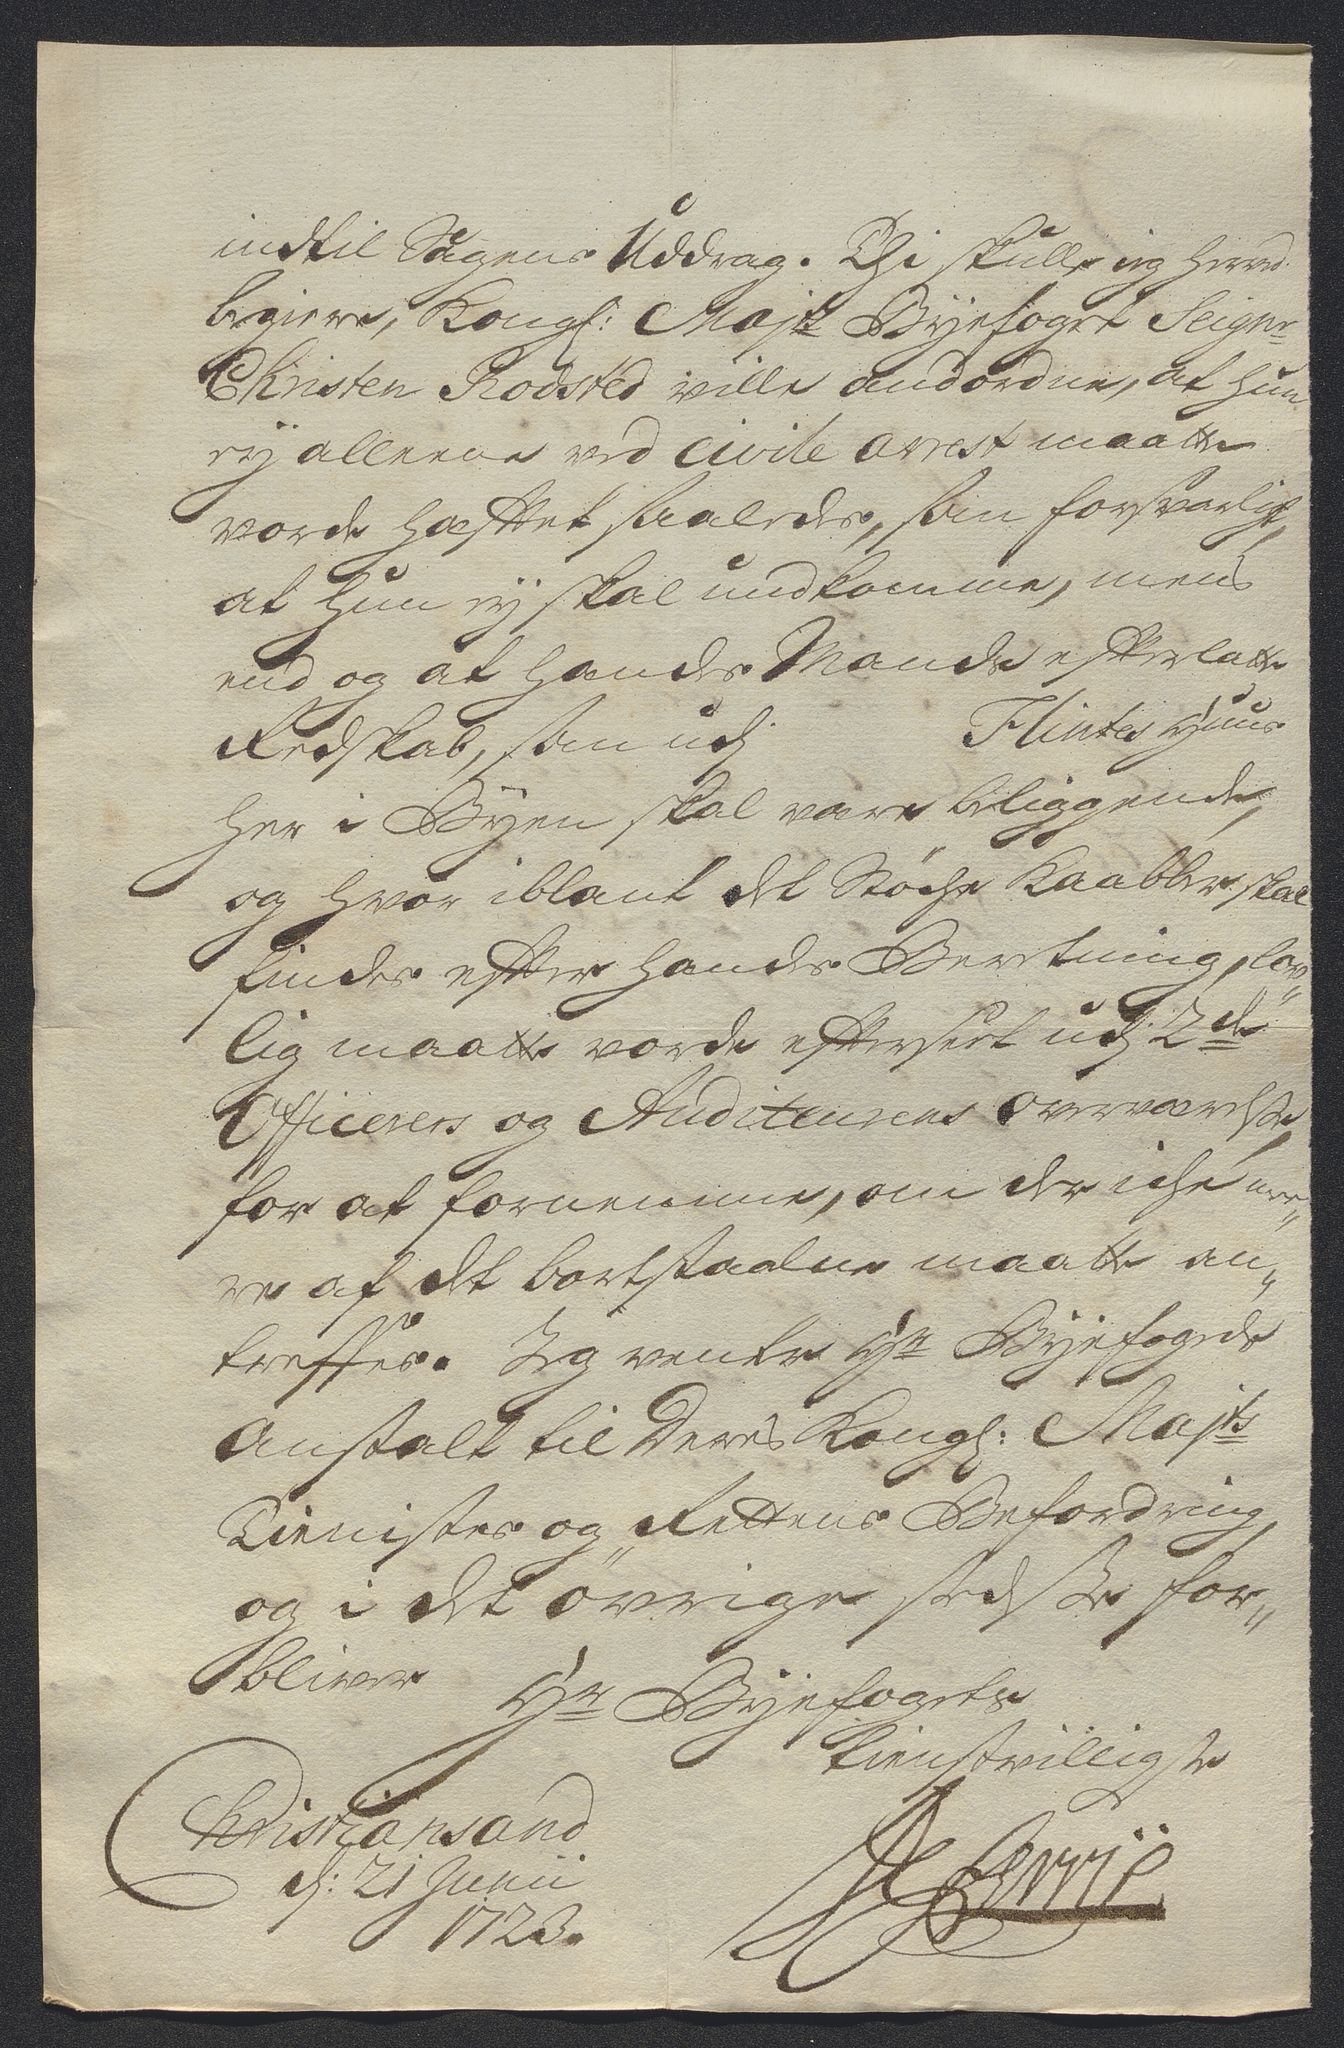 indtil Sagens Uddrag. Thi skulle ieg herved
begiere, Kongl: Majts Byefoget Seignr
Christen Rodsted ville andordne, at hun
ey alleene ved civile arrest maatte
vorde hæfftet saaledes, som forsvarligt,
at hun ey skal undkomme, mens
end og at hendes Mands efterlatte
Redskab, som udj Flintes Huus
her i Byen skal være beliggende,
og hvor iblant det Støche Kaabber skal
findes effter hendes Beretning, lov„
lig maatte vorde effterseet udj 2de
Officerers og Auditeurens overværelse,
for at fornemme, om der iche mee„
re af det bortstaalne maatte an„
treffes. Jeg venter Hr Byefogeds
Anstalt til Deres Kongl: Majts
Tienistes og Rettens Befordring,
og i det øvrige stedse for„
bliver Hr Byefogets
tienstvilligste
Christiansand
d: 21 Junii
1723.